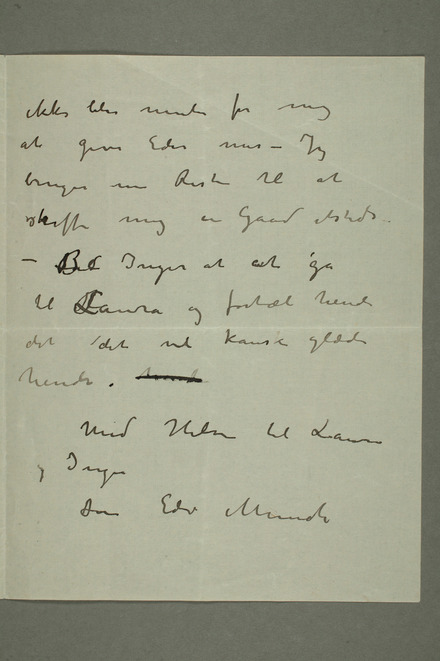 ikke blir mulig for mig
at give Eder mer – Jeg
bruger nu Resten til at
skaffe mig en Gaard etsteds –
– Bed Inger at gå
til Laura og fortæl hende
det det vil kanske glæde
hende.
Med Hilsen til Laura
og Inger
Din Edv Munch